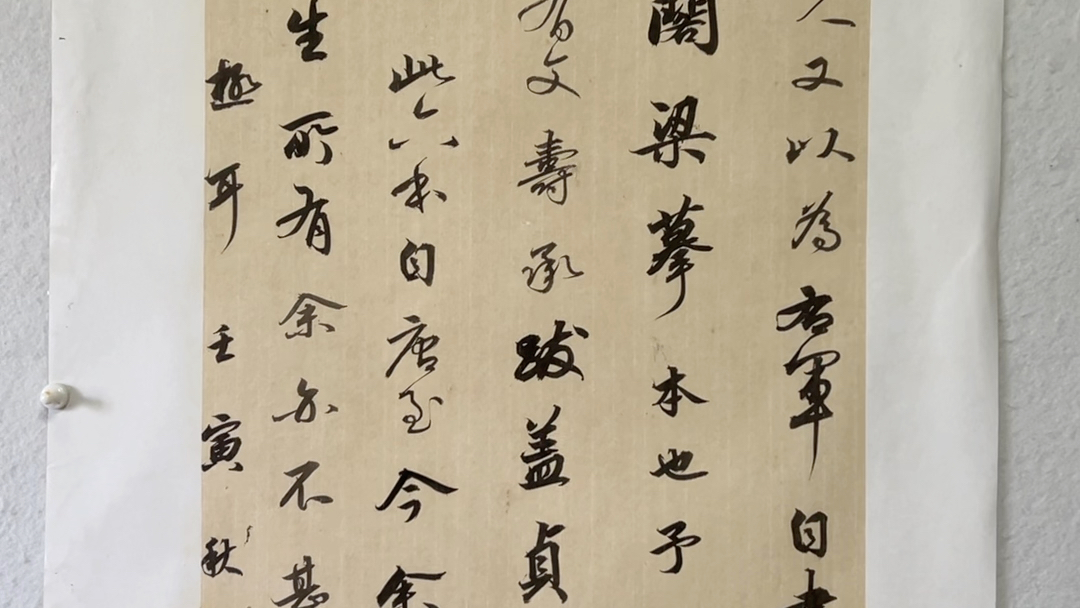 人又以為右軍自書
閣梁摹本也予
有文壽承跋蓋貞
此六本自唐至今余
生所有余亦不甚
耳壬寅秋